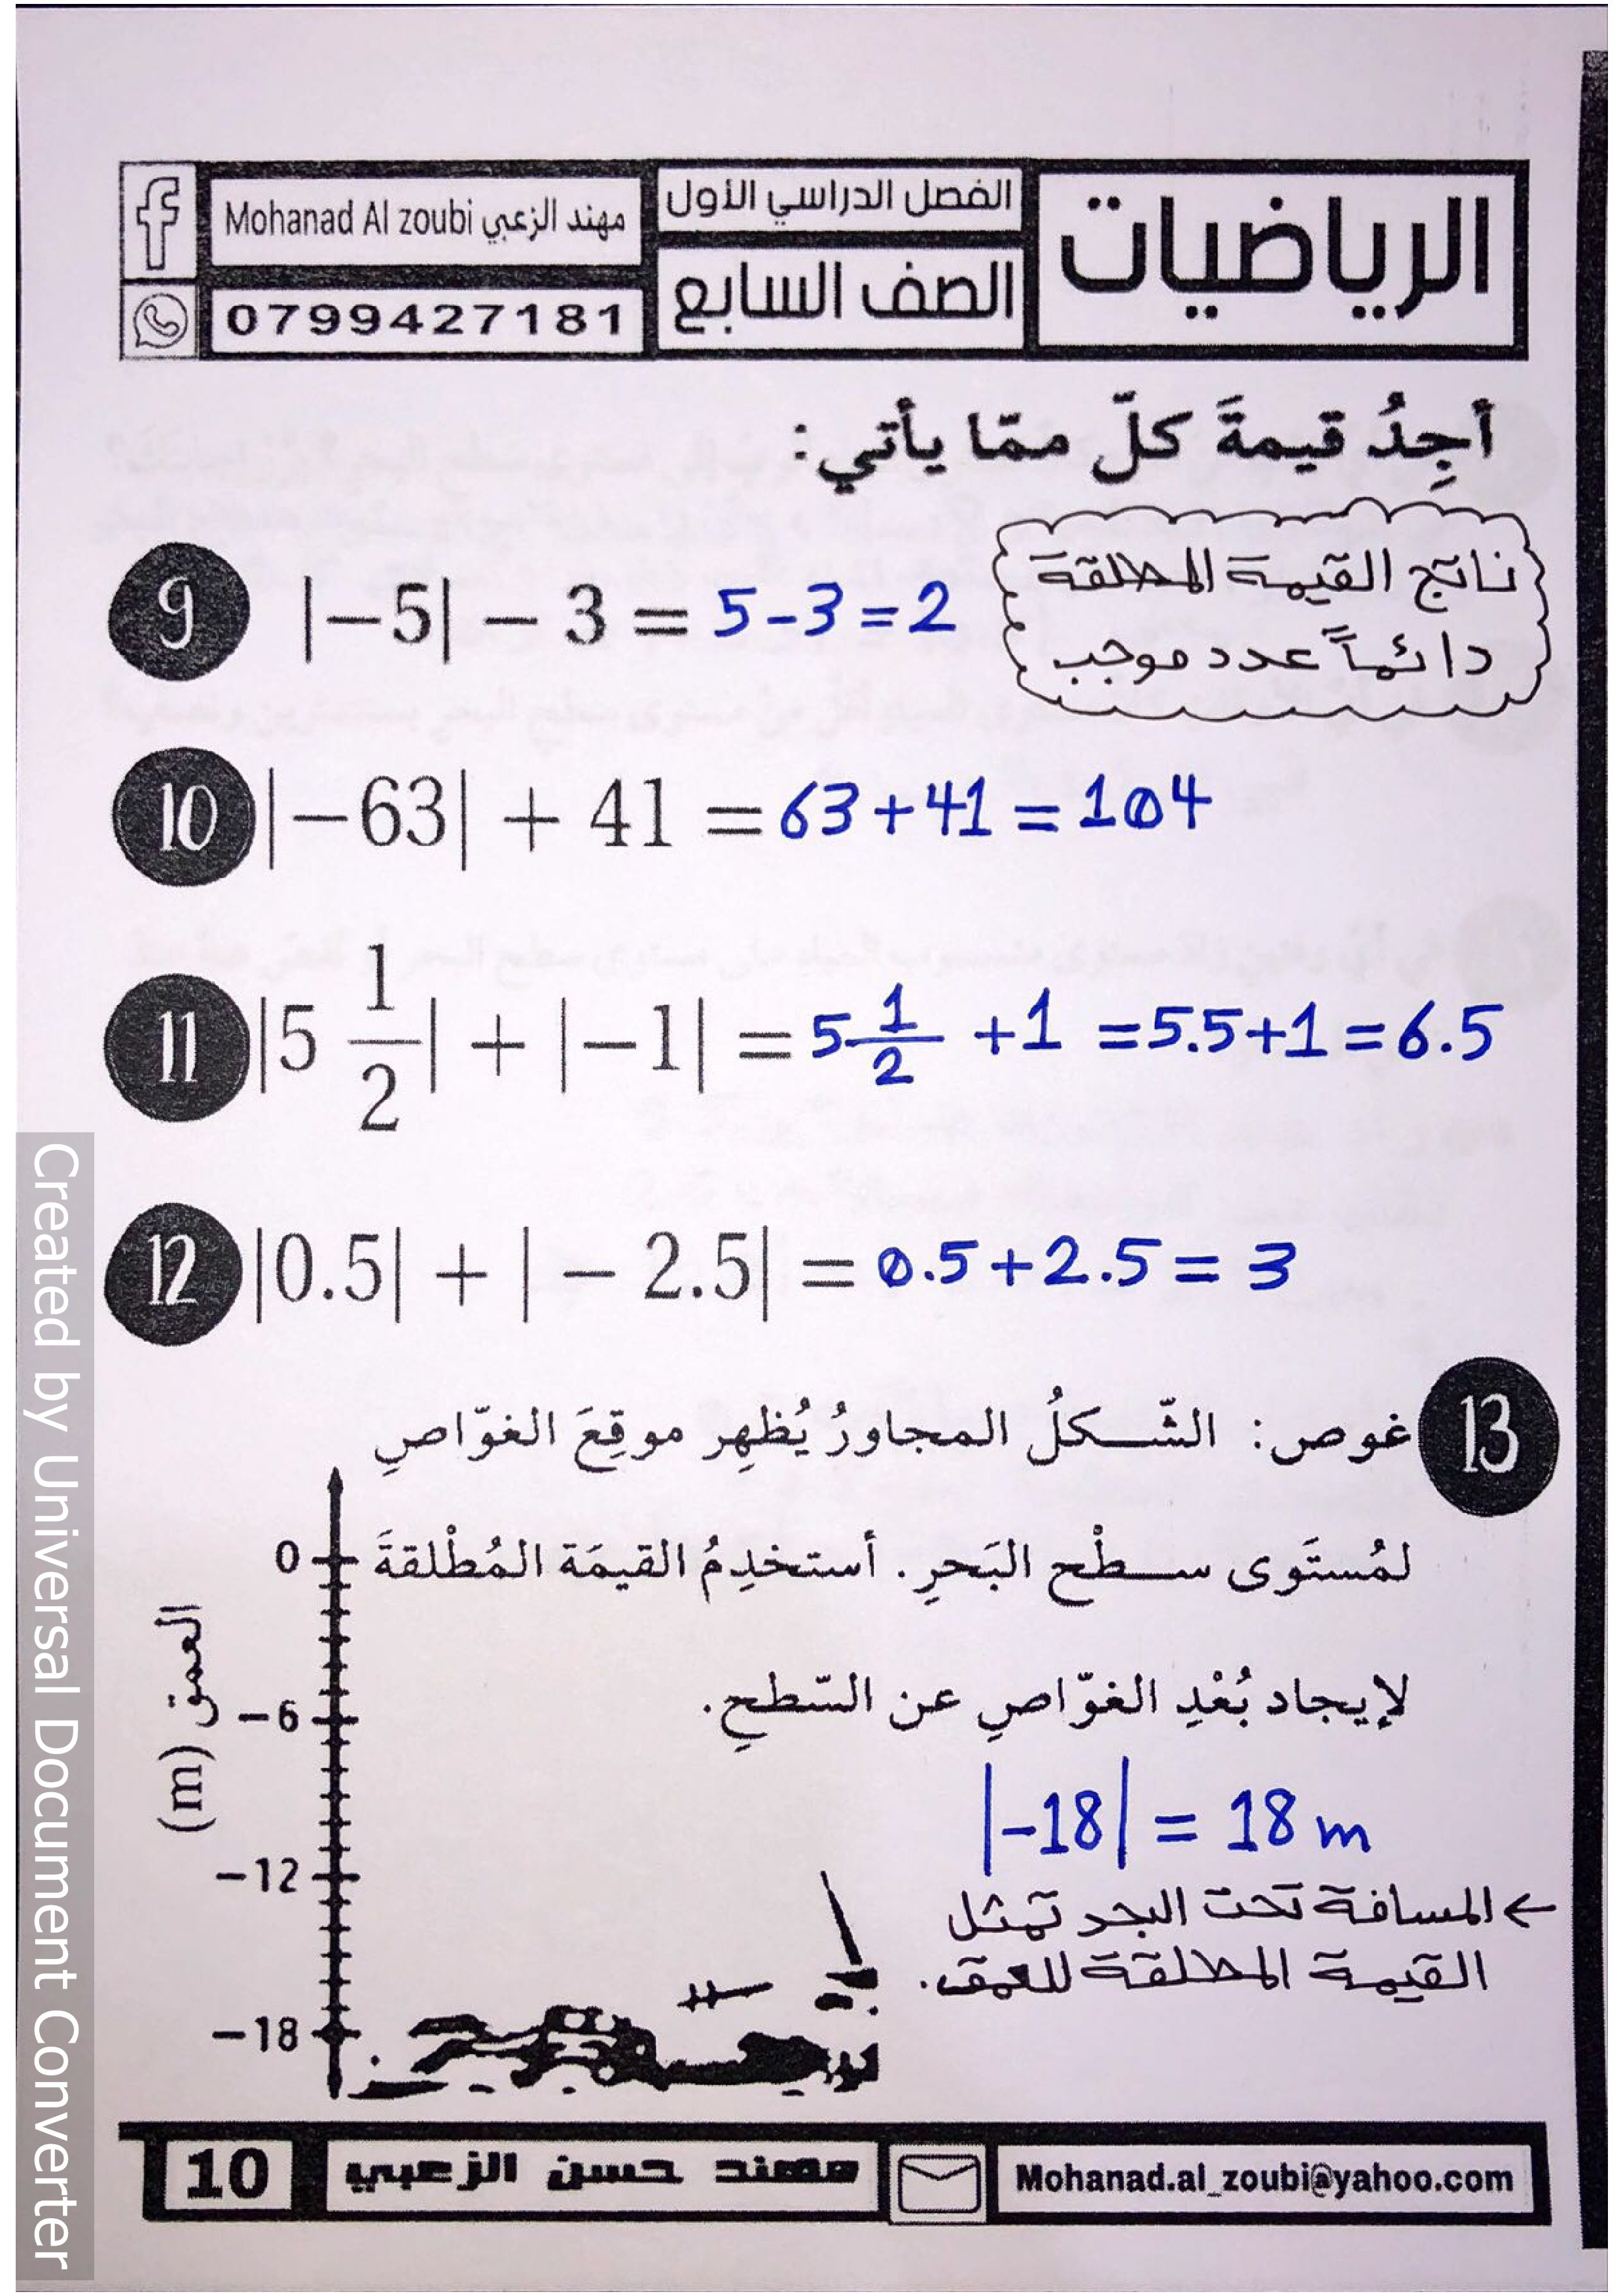 الرياضيات
الفصل الدراسي الأول
الصف السابع
Mohanad Al zoubi مهند الزعبي
0799427181
أجِدُ قيمةَ كلّ ممّا يأتي:
ناتج القيمة المطلقة
دائماً عدد موجب
9 |−5| − 3 = 5-3=2
10 |−63| + 41 = 63+41=104
11 |5 1/2| + |−1| = 5 1/2 +1 =5.5+1=6.5
12 |0.5| + | − 2.5| = 0.5+2.5= 3
13 غوص: الشّكلُ المجاورُ يُظهِر موقِعَ الغوّاصِ
لمُستَوى سطْح البَحرِ. أستخدِمُ القيمَة المُطْلقةَ
لإيجاد بُعْدِ الغوّاصِ عن السّطحِ.
|-18| = 18 m
← المسافة تحت البحر تمثل
القيمة المطلقة للعمق.
العمق (m)
0
−6
−12
−18
10
مهند حسن الزعبي
Mohanad.al_zoubi@yahoo.com
Created by Universal Document Converter